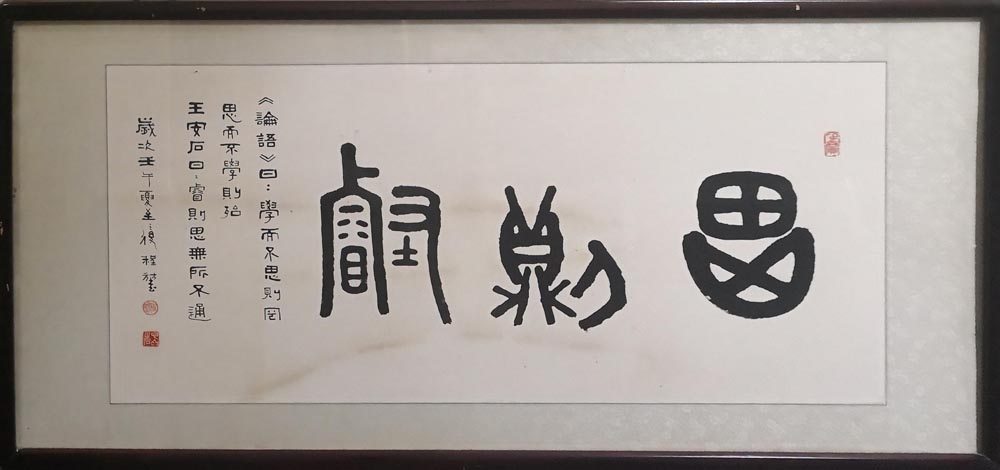 思則叡
《論語》曰：學而不思則罔
思而不學則殆
王安石曰：睿則思無所不通
歲次壬午夏至後 程